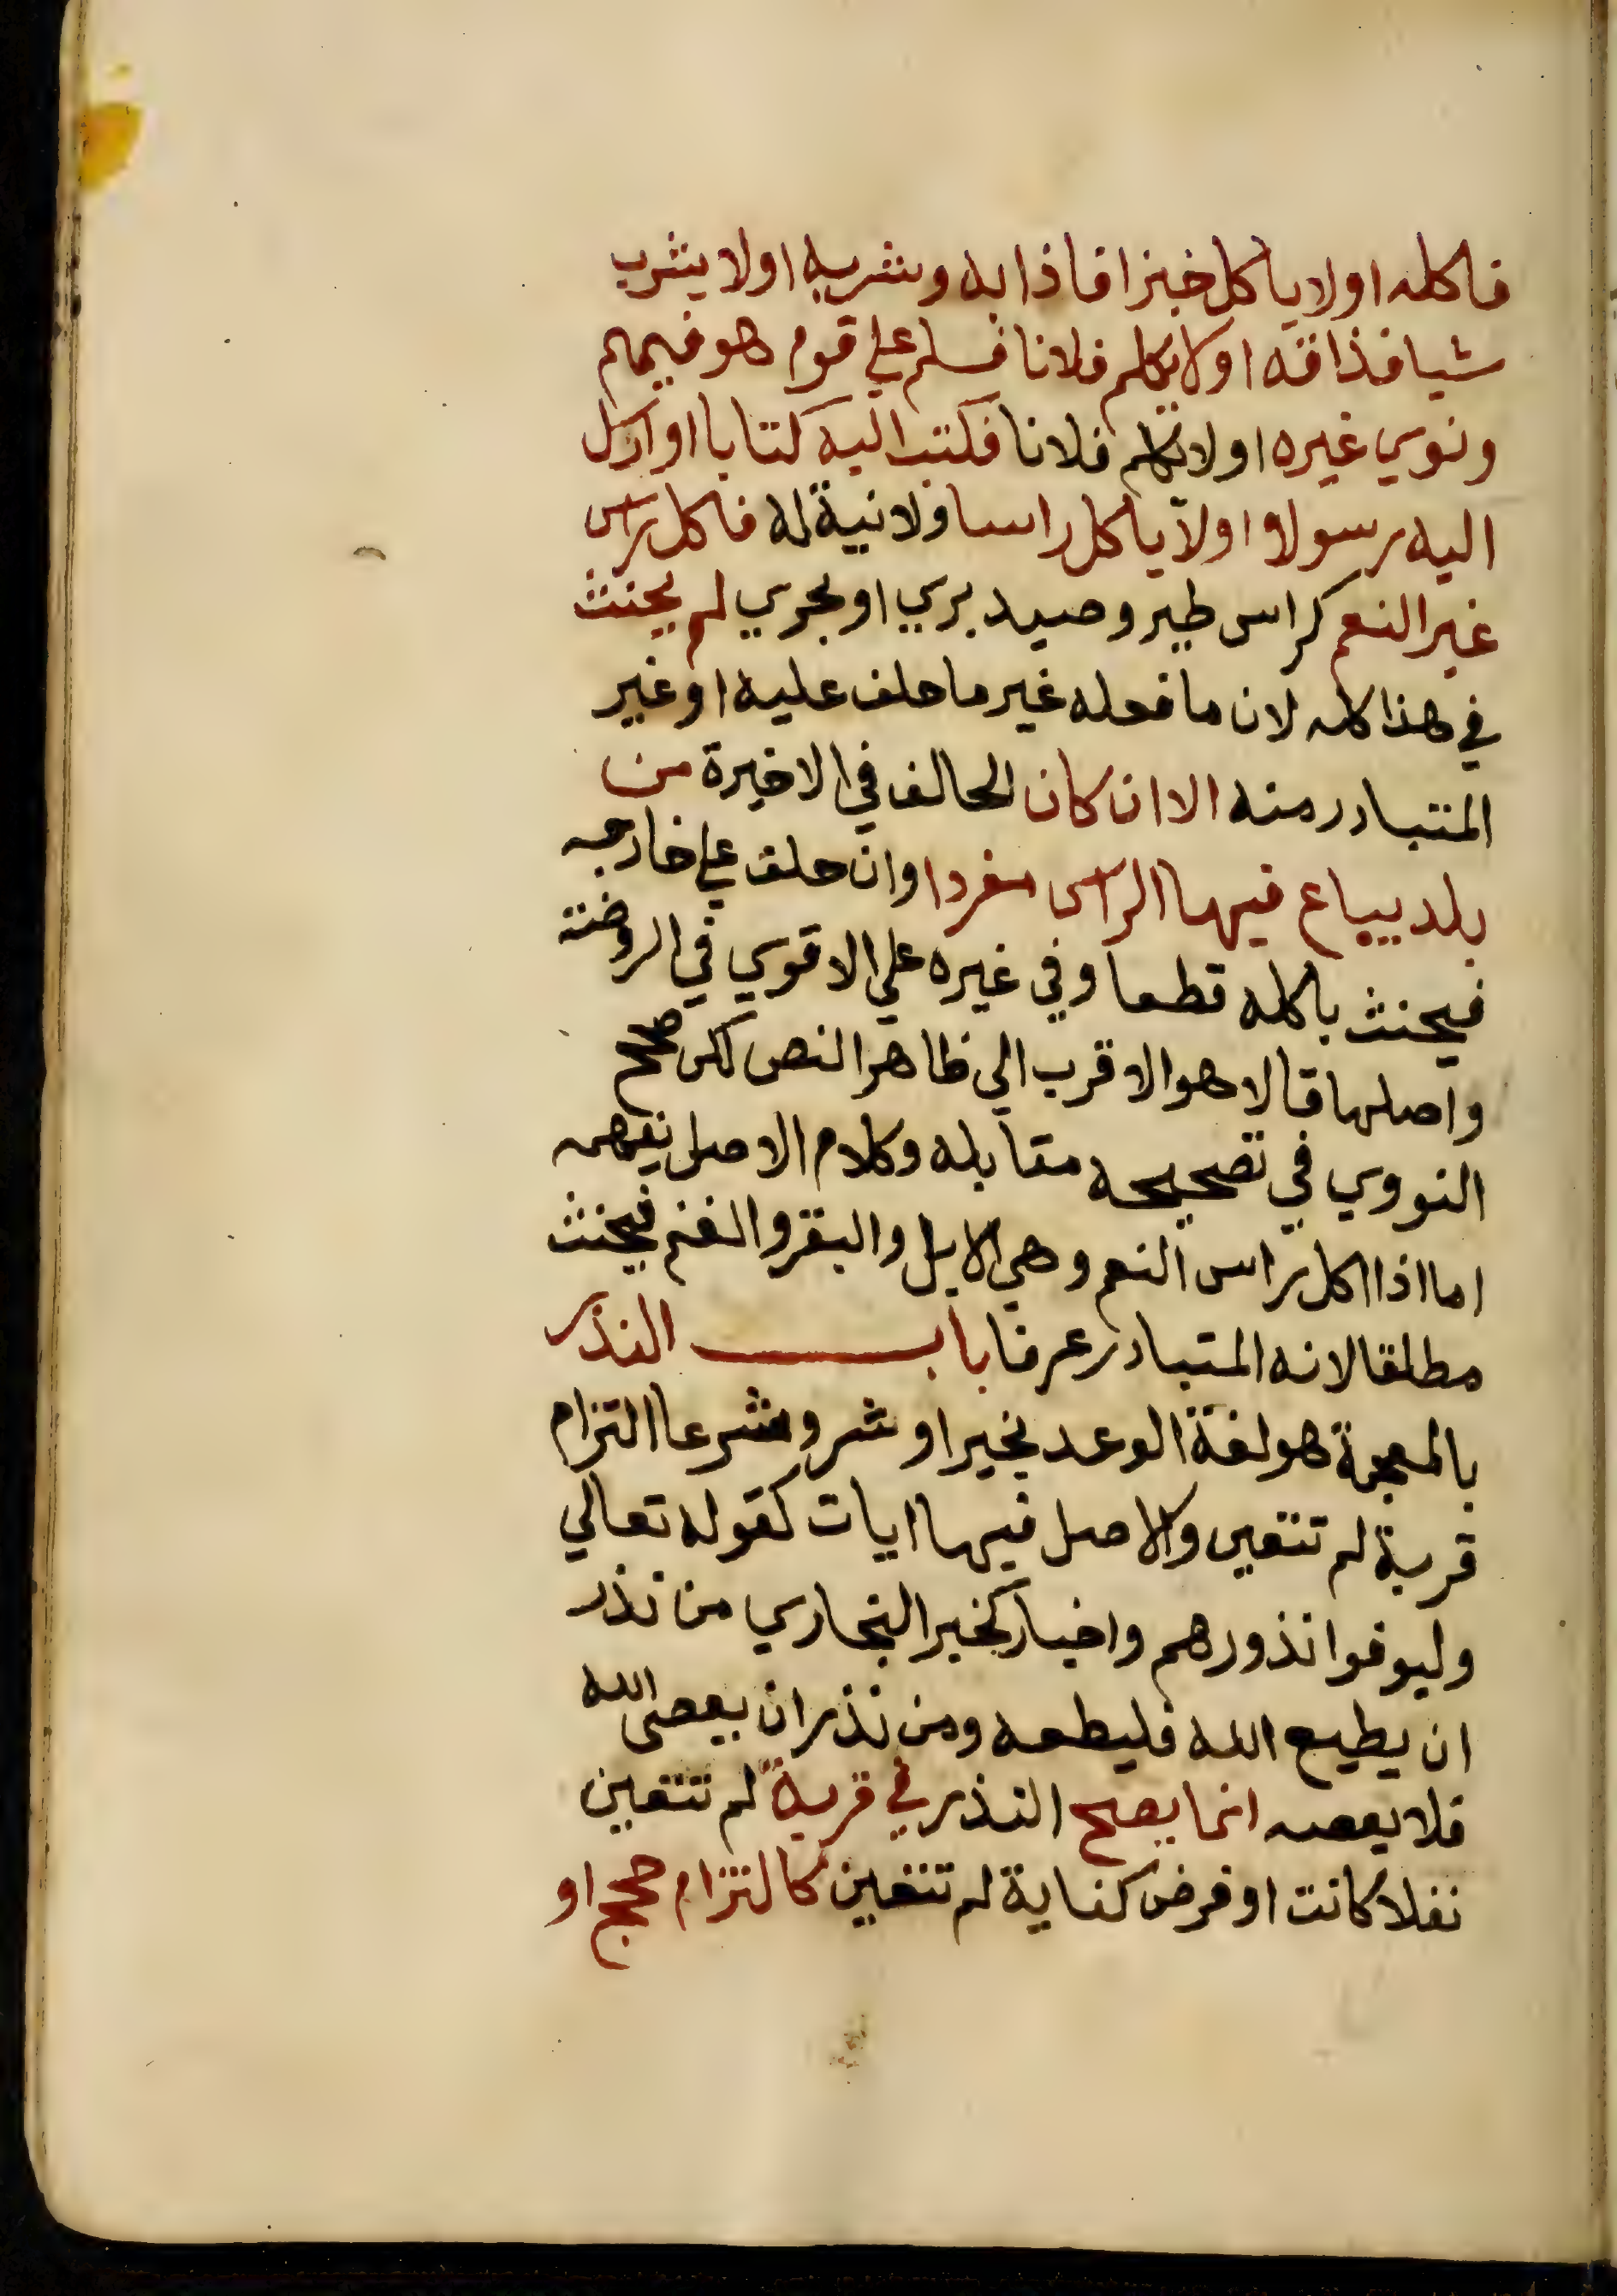 فاكله او لا ياكل خبزا فاذابه وشربه او لا يشرب
شيا فذاقه او لا يكلم فلانا فسلم علي قوم هو فيهم
ونوي غيره او لا يكلم فلانا فكتب اليه كتابا او ارسل
اليه رسولا او لا ياكل راسا ولا نية له فاكل راس
غير النعم كراس طير وصيد بري او بحري لم يحنث
في هذا كله لان ما فعله غير ما حلف عليه او غير
المتبادر منه الا ان كان الحالف في الاخيرة من
بلد يباع فيها الراس مفردا وان حلف علي خارجه
فيحنث باكله قطعا وفي غيره علي الاقوي في الروضة
واصلها قالا هو الاقرب الي ظاهر النص لكن صحح
النووي في تصحيحه مقابله وكلام الاصل يفهمه
اما اذا اكل راس النعم وهي الابل والبقر والغنم فيحنث
مطلقا لانه المتبادر عرفا باب النذر
بالمعجمة هو لغة الوعد بخير او شر وشرعا التزام
قربة لم تتعين والاصل فيها ايات كقوله تعالي
وليوفوا نذورهم واخبار كخبر البخاري من نذر
ان يطيع الله فليطعه ومن نذر ان يعصي الله
فلا يعصه انما يصح النذر في قربة لم تتعين
نفلا كانت او فرض كفاية لم تتعين كالتزام حج او